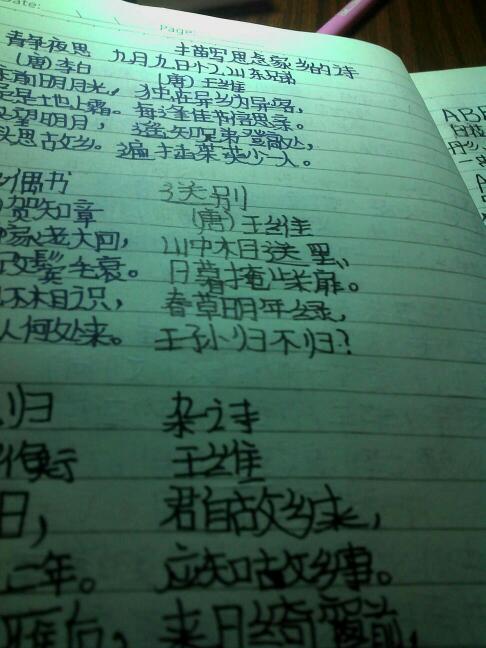 Date:
Page:
描写思念家乡的诗
静夜思 九月九日忆山东兄弟
(唐)李白 (唐)王维
前明月光，独在异乡为异客，
是地上霜。每逢佳节倍思亲。
望明月，遥知兄弟登高处，
头思故乡。遍插茱萸少一人。
偶书 送别
贺知章 (唐)王维
家老大回，山中相送罢，
改鬓毛衰。日暮掩柴扉。
不相识，春草明年绿，
人何处来。王孙归不归？
归 杂诗
道衡 王维
日，君自故乡来，
二年。应知故乡事。
雁后，来日绮窗前，